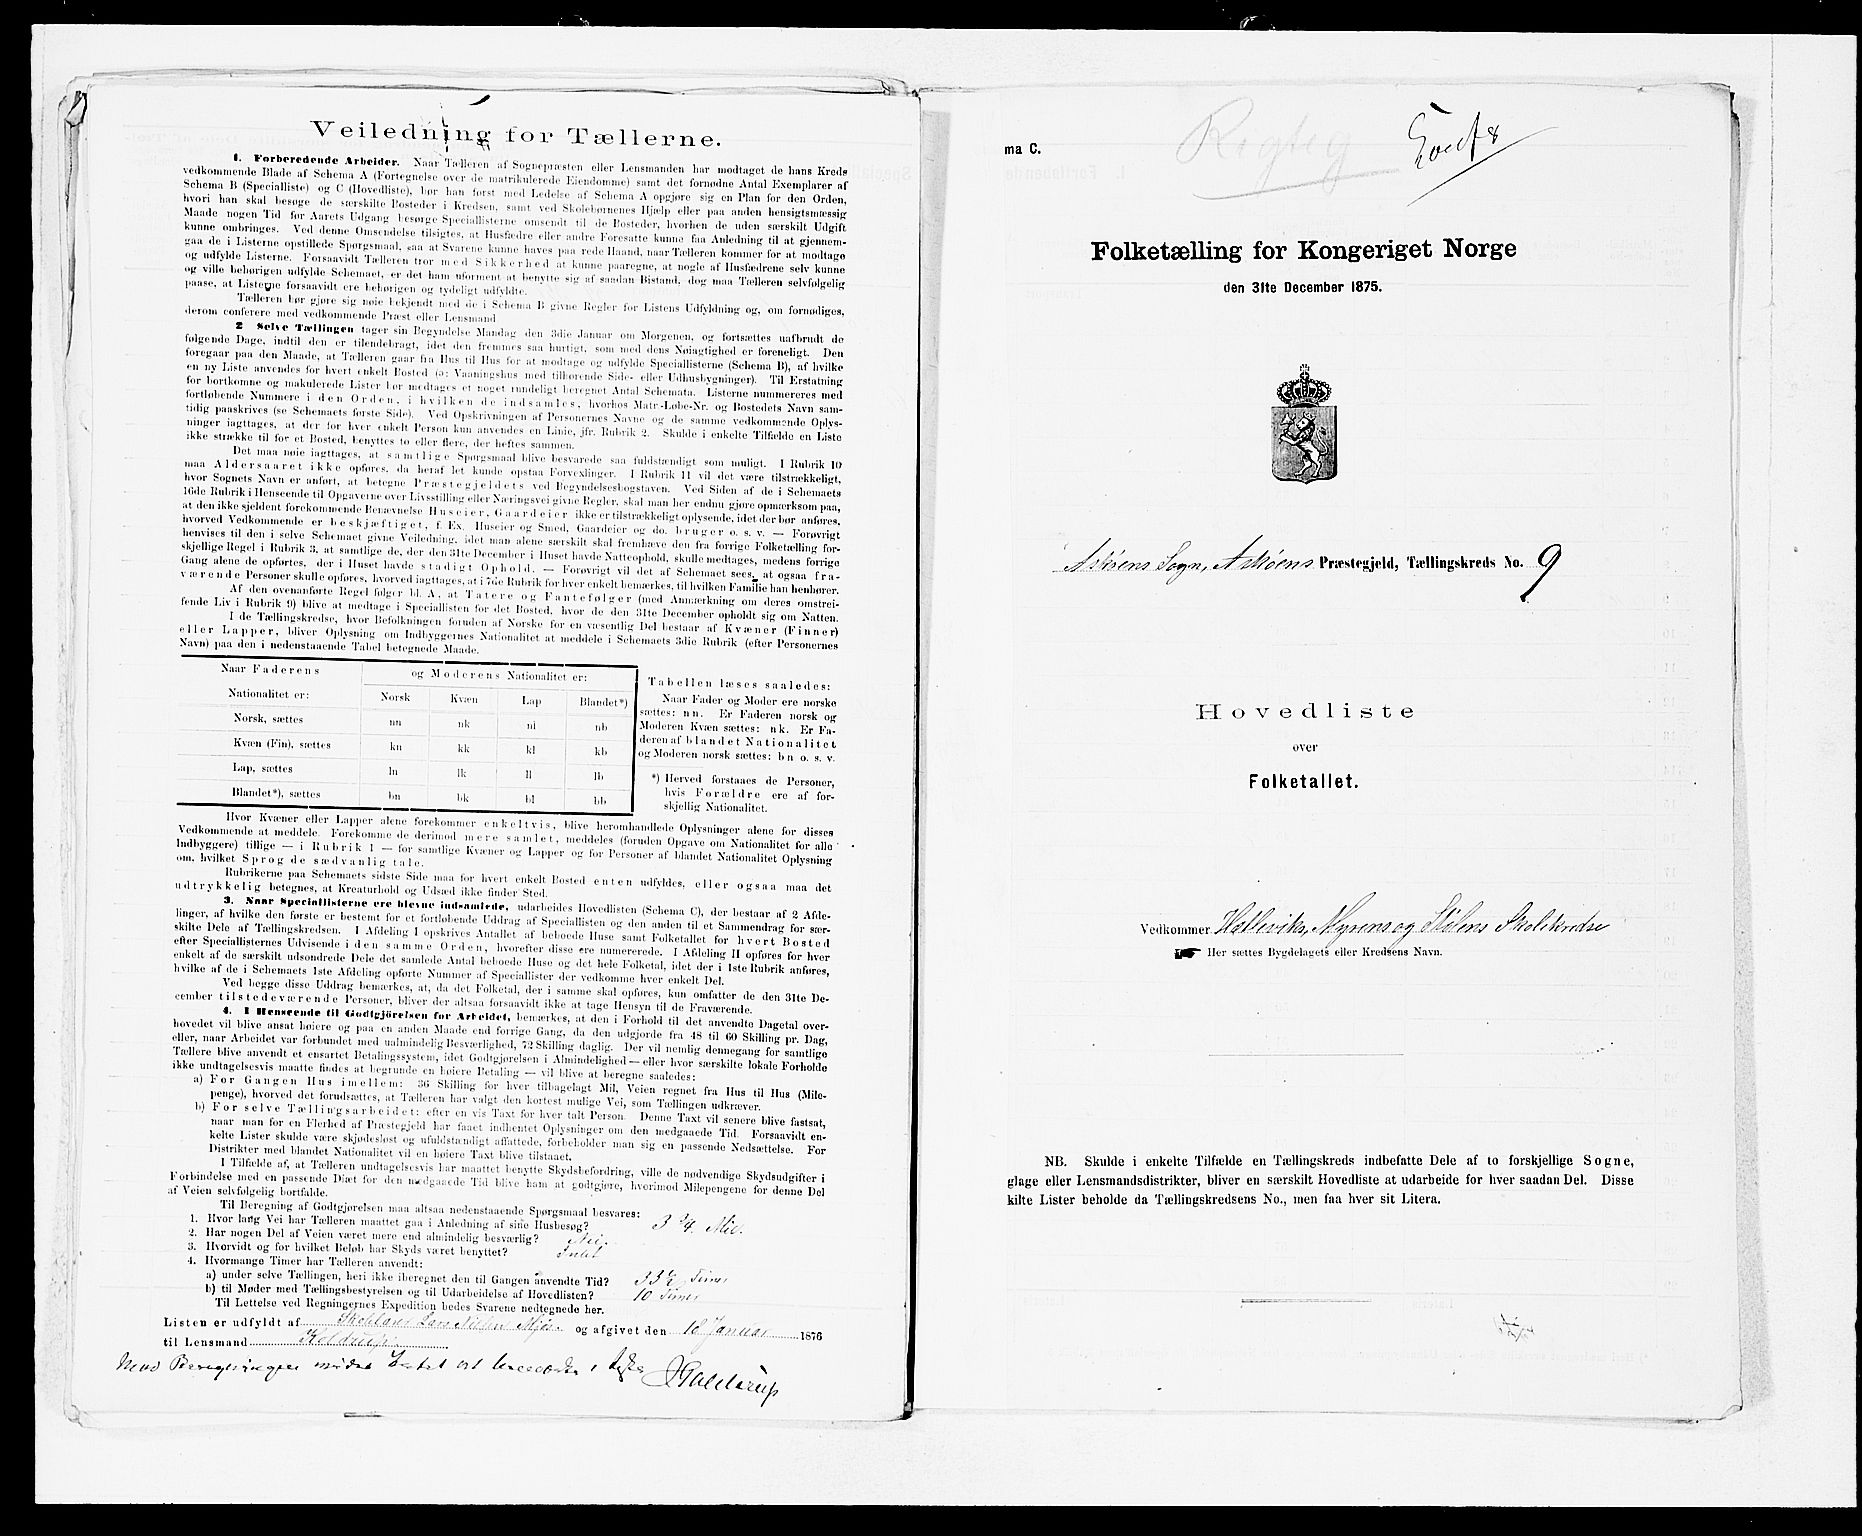 Veiledning for Tællerne.
1. Forberedende Arbeider. Naar Tælleren af Sognepræsten eller Lensmanden har modtaget de hans Kreds
vedkommende Blade af Schema A (Fortegnelse over de matrikulerede Eiendomme) samt det fornødne Antal Exemplarer af
Schema B (Specialliste) og C (Hovedliste), bør han først med Ledelse af Schema A opgjøre sig en Plan for den Orden,
hvori han skal besøge de særskilte Bosteder i Kredsen, samt ved Skolebørnenes Hjælp eller paa anden hensigtsmæssig
Maade nogen Tid før Aarets Udgang besørge Speciallisterne omsendt til de Bosteder, hvorhen de uden særskilt Udgift
kunne ombringes. Ved denne Omsendelse tilsigtes, at Husfædre eller andre Foresatte kunne faa Anledning til at gjennem-
gaa de i Listerne opstillede Spørgsmaal, saa at Svarene kunne haves paa rede Haand, naar Tælleren kommer for at modtage
og udfylde Listerne. Forsaavidt Tælleren tror med Sikkerhed at kunne paaregne, at nogle af Husfædrene selv kunne
og ville behørigen udfylde Schemaet, er det ham uforment at benytte sig af saadan Bistand, dog maa Tælleren selvfølgelig
paase, at Listerne forsaavidt ere behørigen og tydeligt udfyldte.
Tælleren bør gjøre sig nøie bekjendt med de i Schema B givne Regler for Listens Udfyldning og, om fornødiges,
derom conferere med vedkommende Præst eller Lensmand
2 Selve Tællingen tager sin Begyndelse Mandag den 3die Januar om Morgenen, og fortsættes uafbrudt de
følgende Dage, indtil den er tilendebragt, idet den fremmes saa hurtigt, som med dens Nøiagtighed er foreneligt. Den
foregaar paa den Maade, at Tælleren gaar fra Hus til Hus for at modtage og udfylde Speciallisterne (Schema B), af hvilke
en ny Liste anvendes for hvert enkelt Bosted (ɔ: Vaaningshus med tilhørende Side- eller Udhusbygninger). Til Erstatning
for bortkomne og makulerede Lister bør medtages et noget rundeligt beregnet Antal Schemata. Listerne nummereres med
fortløbende Nummere i den Orden, i hvilken de indsamles, hvorhos Matr.-Løbe-Nr. og Bostedets Navn sam-
tidig paaskrives (se Schemaets første Side). Ved Opskrivningen af Personernes Navne og de samme vedkommende Oplys-
ninger iagttages, at der for hver enkelt Person kun anvendes en Linie, jfr. Rubrik 2. Skulde i enkelte Tilfælde en Liste
ikke strække til for et Bosted, benyttes to eller flere, der heftes sammen.
Det maa nøie iagttages, at samtlige Spørgsmaal blive besvarede saa fuldstændigt som muligt. I Rubrik 10
maa Aldersaaret ikke opføres, da heraf let kunde opstaa Forvexlinger. I Rubrik 11 vil det være tilstrækkeligt,
hvor Sognets Navn er anført, at betegne Præstegjeldets ved Begyndelsesbogstaven. Ved Siden af de i Schemaets
16de Rubrik i Henseende til Opgaverne over Livsstilling eller Næringsvei givne Regler, skal man her endnu gjøre opmærksom paa,
at den ikke sjeldent forekommende Benævnelse Huseier, Gaardeier ikke er tilstrækkeligt oplysende, idet der bør anføres,
hvorved Vedkommende er beskjæftiget, f. Ex. Huseier og Smed, Gaardeier og do. bruger o. s. v. — Forøvrigt
henvises til den i selve Schemaet givne Veiledning, idet man alene særskilt skal fremhæve den fra forrige Folketælling for-
skjellige Regel i Rubrik 3, at samtlige de, der den 31te December i Huset havde Natteophold, skulle medtages, medens forrige
Gang alene de opførtes, der i Huset havde stadigt Ophold. — Forøvrigt vil det af Schemaet sees, at ogsaa fra-
værende Personer skulle opføres, hvorved iagttages, at i 7de Rubrik for hver enkelt bemærkes, til hvilken Familie han henhører.
Af den ovenanførte Regel følger bl. A, at Tatere og Fantefølger (med Anmærkning om deres omstrei-
fende Liv i Rubrik 9) blive at medtage i Speciallisten for det Bosted, hvor de den 31te December opholdt sig om Natten.
I de Tællingskredse, hvor Befolkningen foruden af Norske for en væsentlig Del bestaar af Kvæner (Finner)
eller Lapper, bliver Oplysning om Indbyggernes Nationalitet at meddele i Schemaets 3die Rubrik (efter Personernes
Navn) paa den i nedenstaaende Tabel betegnede Maade.
Naar Faderens Nationalitet er: og Moderens Nationalitet er:
Norsk Kvæn Lap Blandet*)
Norsk, sættes nn nk nl nb
Kvæn (Fin), sættes kn kk kl kb
Lap, sættes ln lk ll lb
Blandet*), sættes bn bk bl bb
Tabellen læses saaledes:
Naar Fader og Moder ere norske
sættes: nn. Er Faderen norsk og
Moderen Kvæn sættes: nk. Er Fa-
deren af blandet Nationalitet
og Moderen norsk sættes: bn o. s. v.
*) Herved forstaaes de Personer,
hvis Forældre ere af for-
skjellig Nationalitet.
Hvor Kvæner eller Lapper alene forekommer enkeltvis, blive heromhandlede Oplysninger alene for disses
Vedkommende at meddele. Forekomme de derimod mere samlet, meddeles (foruden Opgave om Nationalitet for alle
Indbyggere) tillige — i Rubrik 1 — for samtlige Kvæner og Lapper og for Personer af blandet Nationalitet Oplysning
om, hvilket Sprog de sædvanlig tale.
Rubrikerne paa Schemaets sidste Side maa for hvert enkelt Bosted enten udfyldes, eller ogsaa maa det
udtrykkelig betegnes, at Kreaturhold og Udsæd ikke finder Sted.
3. Naar Speciallisterne ere blevne indsamlede, udarbeides Hovedlisten (Schema C), der bestaar af 2 Afde-
linger, af hvilke den første er bestemt for et fortløbende Uddrag af Speciallisten og den anden til et Sammendrag for sær-
skilte Dele af Tællingskredsen. I Afdeling I opskrives Antallet af beboede Huse samt Folketallet for hvert Bosted
efter Speciallisternes Udvisende i den samme Orden, hvorefter disse ere numererede. I Afdeling II opføres for hver
enkelt af de særskilt udsondrede Dele det samlede Antal beboede Huse og det hele Folketal, idet der i 1ste Rubrik anføres,
hvilke af de i Schemaets 1ste Afdeling opførte Nummer af Speciallister der vedkomme hver enkelt Del.
Ved begge disse Uddrag bemærkes, at, da det Folketal, der i samme skal opføres, kun omfatter de den 31te De-
cember tilstedeværende Personer, bliver der altsaa forsaavidt ikke at tage Hensyn til de Fraværende.
4. I Henseende til Godtgjörelsen for Arbeidet, bemærkes, at den i Forhold til det anvendte Dagetal over-
hovedet vil blive ansat høiere og paa en anden Maade end forrige Gang, da den udgjorde fra 48 til 60 Skilling pr. Dag,
eller, naar Arbeidet var forbundet med ualmindelig Besværlighed, 72 Skilling daglig. Der vil nemlig dennegang for samtlige
Tællere blive anvendt et ensartet Betalingssystem, idet Godtgjørelsen i Almindelighed — eller hvor særskilte lokale Forholde
ikke undtagelsesvis maatte findes at begrunde en høiere Betaling — vil blive at beregne saaledes:
a) For Gangen Hus imellem: 36 Skilling for hver tilbagelagt Mil, Veien regnet fra Hus til Hus (Mile-
penge), hvorved det forudsættes, at Tælleren har valgt den kortest mulige Vei, som Tællingen udkræver.
b) For selve Tællingsarbeidet: efter en vis Taxt for hver talt Person. Denne Taxt vil senere blive fastsat,
naar man for en Flerhed af Præstegjeld har faaet indhentet Oplysninger om den medgaaede Tid. Forsaavidt en-
kelte Lister skulde være skjødesløst og ufuldstændigt affattede, forbeholder man sig en passende Nedsættelse. For
Distrikter med blandet Nationalitet vil en høiere Taxt blive tilstaaet.
I Tilfælde af, at Tælleren undtagelsesvis har maattet benytte Skydsbefordring, ville de nødvendige Skydsudgifter i
Forbindelse med en passende Diæt for den medgaaede Tid blive ham at godtgjøre, hvorimod Milepengene for denne Del
af Veien selvfølgelig bortfalde.
Til Beregning af Godtgjørelsen maa altsaa nedenstaaende Spørgsmaal besvares:
1. Hvor lang Vei har Tælleren maattet gaa i Anledning af sine Husbesøg? 3 3/4 Mil.
2. Har nogen Del af Veien været mere end almindelig besværlig? Nei.
3. Hvorvidt og for hvilket Beløb har Skyds været benyttet? Intet
4. Hvormange Timer har Tælleren anvendt:
a) under selve Tællingen, heri ikke iberegnet den til Gangen anvendte Tid? 33 1/2 Timer
b) til Møder med Tællingsbestyrelsen og til Udarbeidelse af Hovedlisten? 10 Timer
Til Lettelse ved Regningernes Expedition bedes Svarene nedtegnede her.
Listen er udfyldt af Lars Nielsen og afgivet den 18 Januar 1876
til Lensmand
Mod Beregningen
ma C.
Rigtig
Folketælling for Kongeriget Norge
den 31te December 1875.
Askøens Sogn, Askøens Præstegjeld, Tællingskreds No. 9
Hovedliste
over
Folketallet.
Vedkommer Hættevikr, Myrens og Skolekredse
Her sættes Bygdelagets eller Kredsens Navn.
NB. Skulde i enkelte Tilfælde en Tællingskreds indbefatte Dele af to forskjellige Sogne,
glage eller Lensmandsdistrikter, bliver en særskilt Hovedliste at udarbeide for hver saadan Del. Disse
kilte Lister beholde da Tællingskredsens No., men faa hver sit Litera.